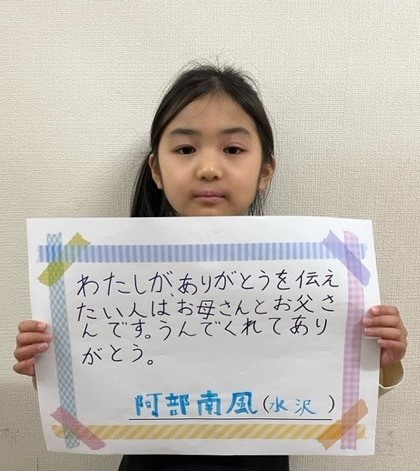 わたしが、ありがとうを伝え
たい人は、お母さんとお父さ
んです。うんでくれてあり
がとう。
阿部南風(水沢)